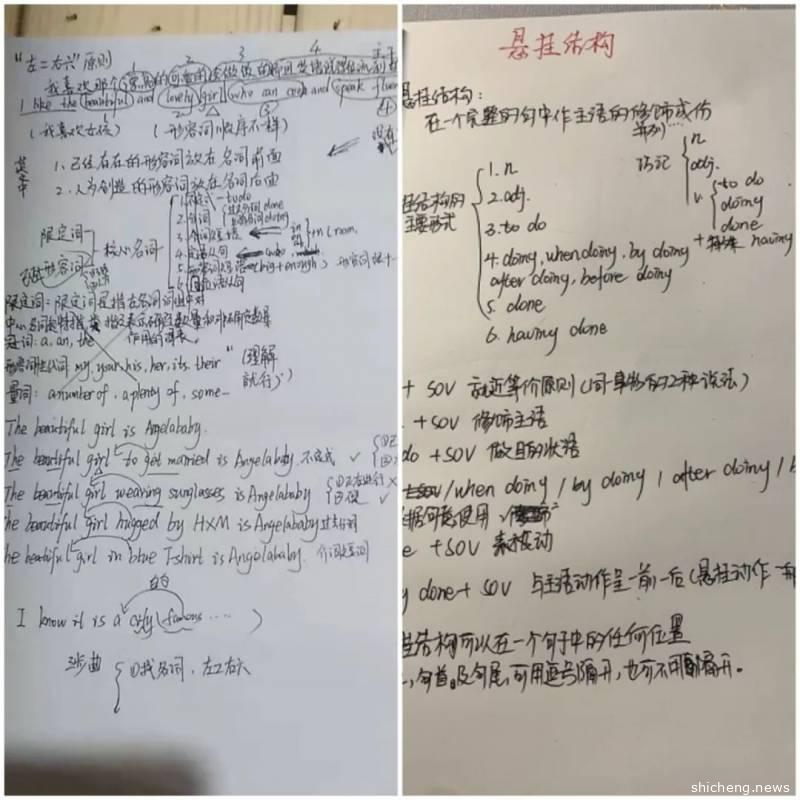 "左二右六"原则
1 2 3 4
我喜欢那个漂亮的可爱的会做饭的
I like the beautiful and lovely girl who can cook and speak fluen
(我喜欢女孩) (形容词顺序不一样)
其中
1、已经存在的形容词放在名词前面
2、人为创造的形容词放在名词后面
限定词
形容词
核心名词
1. to do
2. 分词 done doing
3. 介词短语
4. 从句
5. 形容词短语 (big enough)
6. 定语从句
限定词:限定词是指在名词词组中对
中心名词起特指、类指
冠词:a, an, the
形容词性代词 my, your, his, her, its, their
"(理解就行)"
量词:a number of, a plenty of, some
The beautiful girl is Angelababy.
The beautiful girl to get married is Angelababy 不定式
The beautiful girl wearing sunglasses is Angelababy
he beautiful girl hugged by HXM is Angelababy 过去分词
he beautiful girl in blue T-shirt is Angelababy. 介词短语
的
I know it is a city (famous ......)
3步曲 ①找名词,左2右六
悬挂结构
悬挂结构:
在一个完整的句中作主语的修饰成份
挂结构的主要形式
1. n
2. adj.
3. to do
4. doing, when doing, by doing
after doing, before doing
5. done
6. having done
巧记
n
adj.
v
to do
doing
done
+ 特殊 having
+ SOV 就近等价原则(同一事物的2种说法)
. + SOV 修饰主语
do + SOV 做目的状语
/ when doing / by doing / after doing / b
据句意使用
e + SOV 表被动
g done + SOV 与主语动作呈一前一后(悬挂动作一前
挂结构可以在一个句子中的任何位置
,句首及句尾,可用逗号隔开,也可不用隔开。
shicheng.news